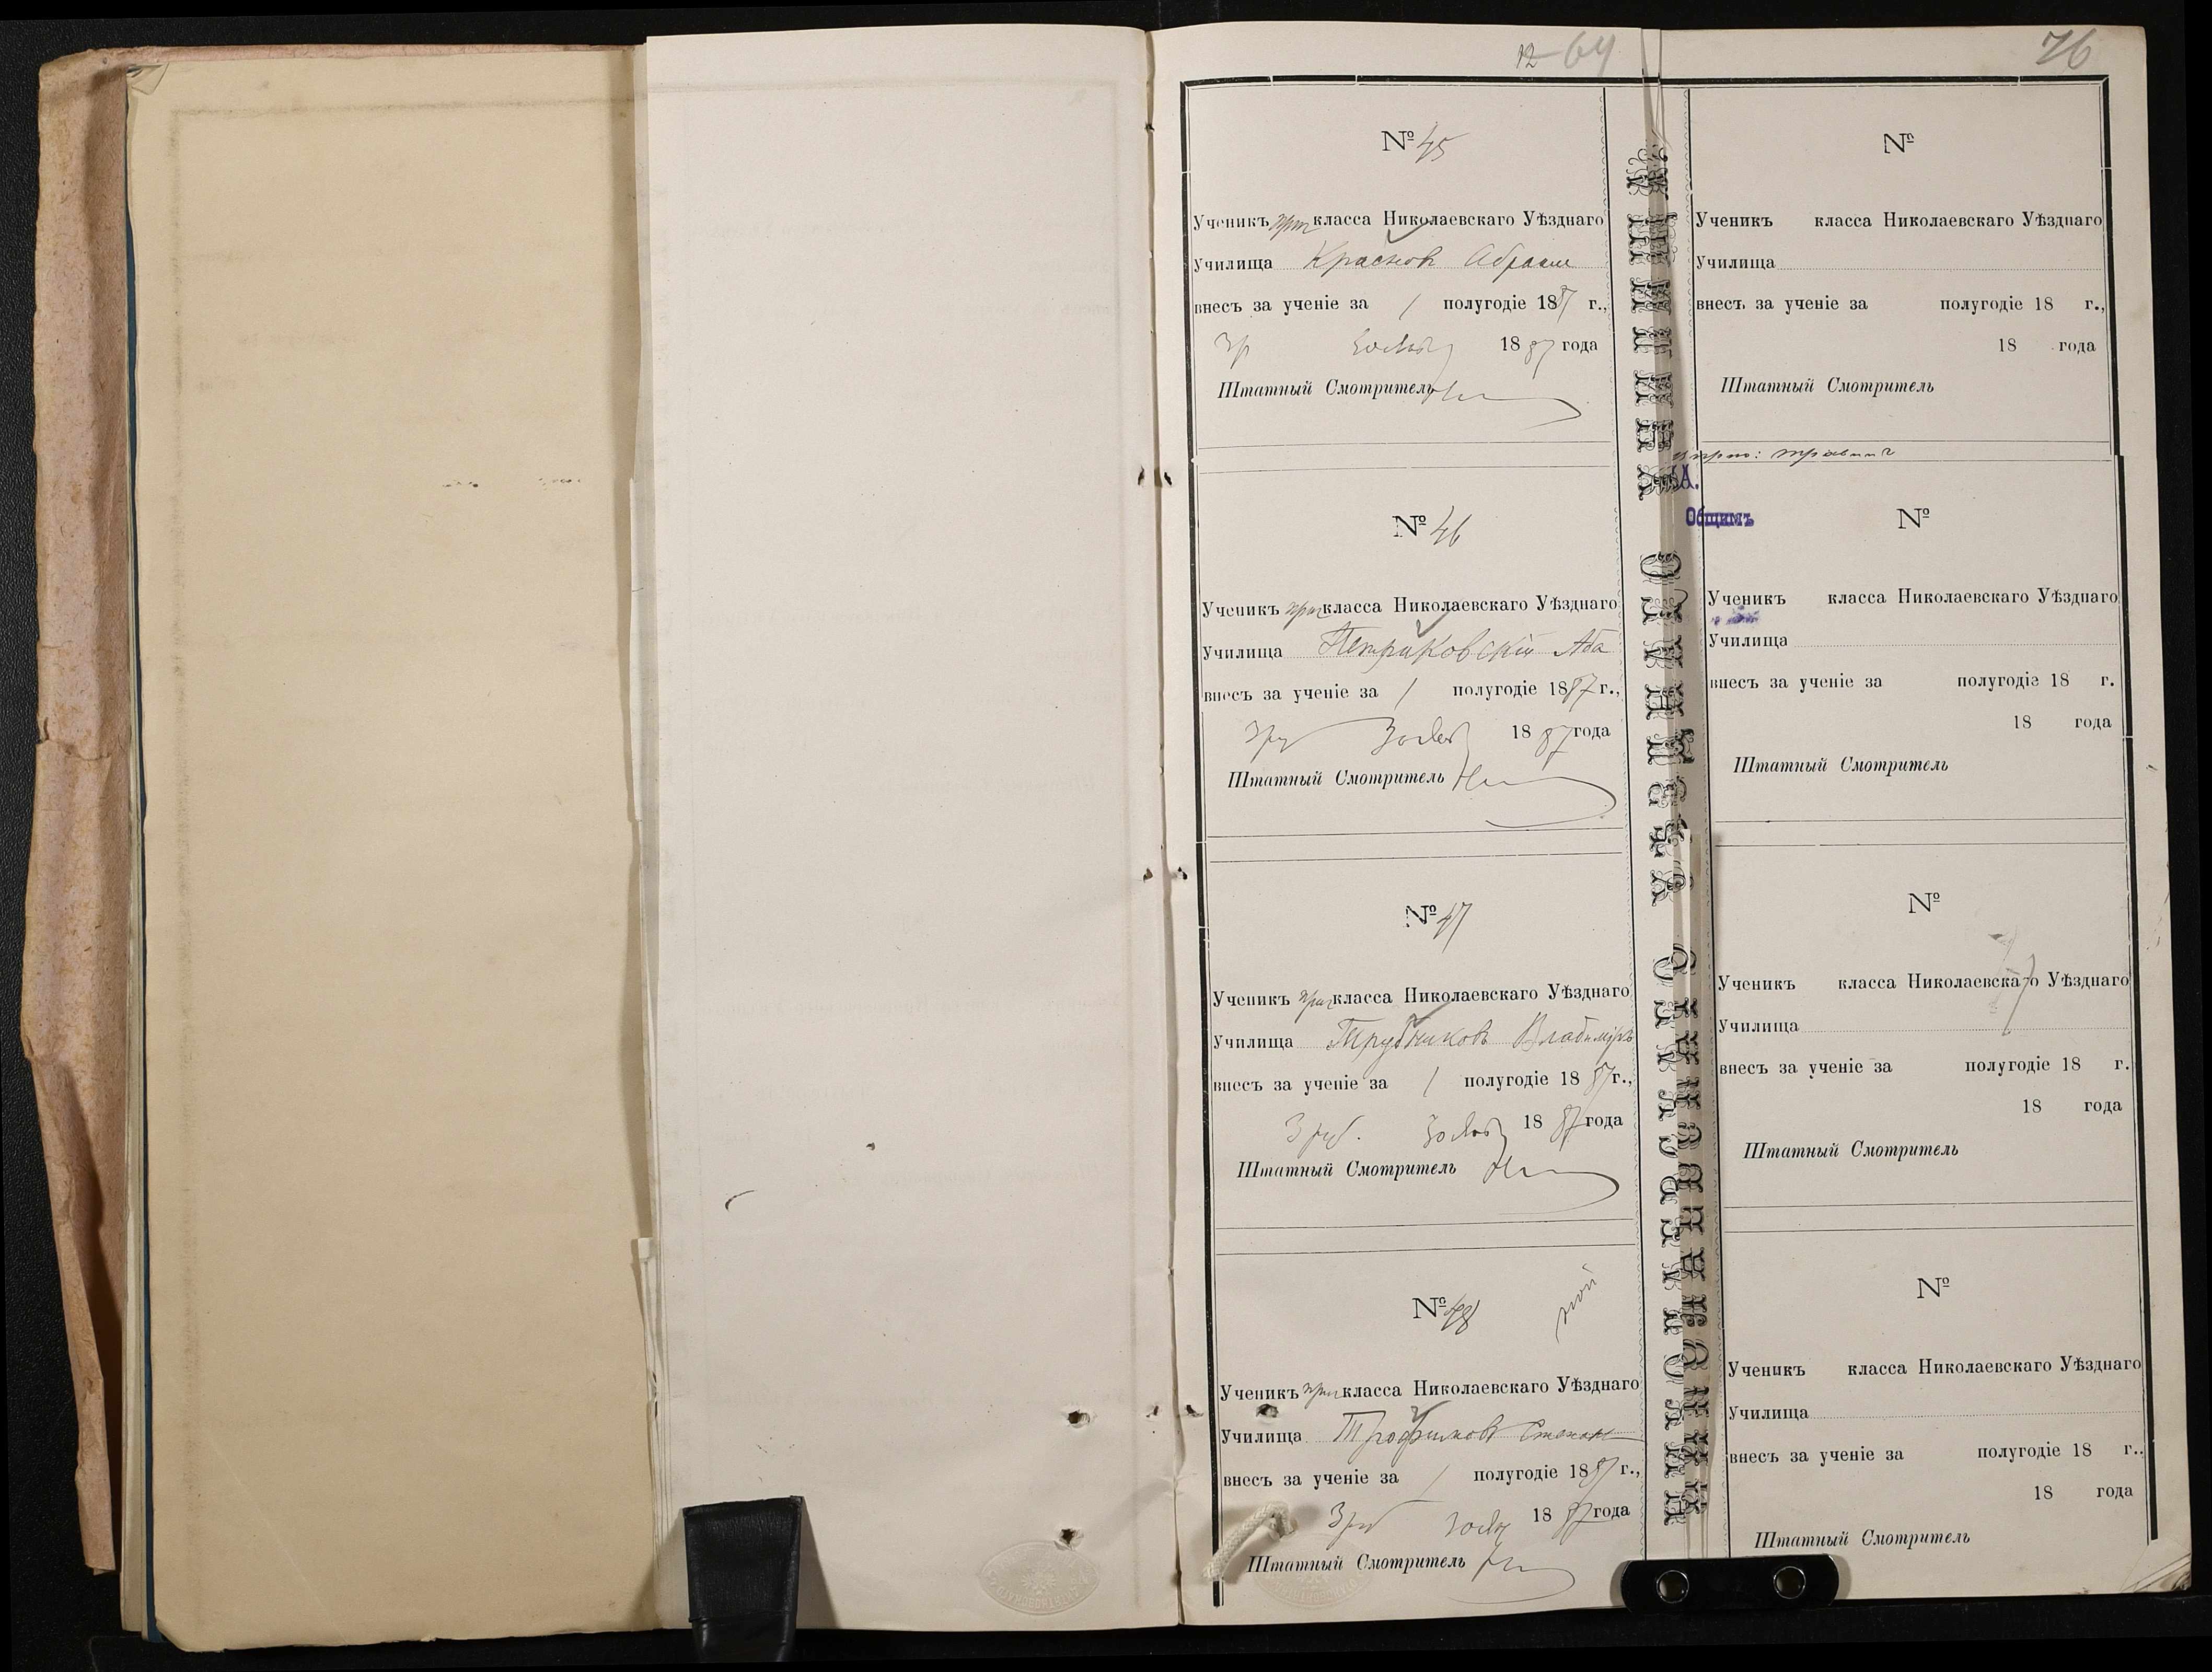 12 64
76
№ 45
Ученикъ приг класса Николаевскаго Уѣзднаго
Училища Краснов Абрам
внесъ за ученіе за 1 полугодіе 1887 г.,
3р 1887 года
Штатный Смотритель
№ 46
Ученикъ приг класса Николаевскаго Уѣзднаго
Училища Петриковскій Аба
внесъ за ученіе за 1 полугодіе 1887 г.,
3ру 1887 года
Штатный Смотритель
№ 47
Ученикъ приг класса Николаевскаго Уѣзднаго
Училища Трубниковъ Владиміръ
внесъ за ученіе за 1 полугодіе 1887 г.,
3 руб. 1887 года
Штатный Смотритель
№ 48
Ученикъ приг класса Николаевскаго Уѣзднаго
Училища Трофимовъ Степанъ
внесъ за ученіе за 1 полугодіе 1887 г.,
3 ру 1887 года
Штатный Смотритель
№
Ученикъ класса Николаевскаго Уѣзднаго
Училища
внесъ за ученіе за полугодіе 18 г.,
18 года
Штатный Смотритель
А.
Общимъ
№
Ученикъ класса Николаевскаго Уѣзднаго
Училища
внесъ за ученіе за полугодіе 18 г.
18 года
Штатный Смотритель
№
Ученикъ класса Николаевскаго Уѣзднаго
Училища
внесъ за ученіе за полугодіе 18 г.
18 года
Штатный Смотритель
№
Ученикъ класса Николаевскаго Уѣзднаго
Училища
внесъ за ученіе за полугодіе 18 г..
18 года
Штатный Смотритель